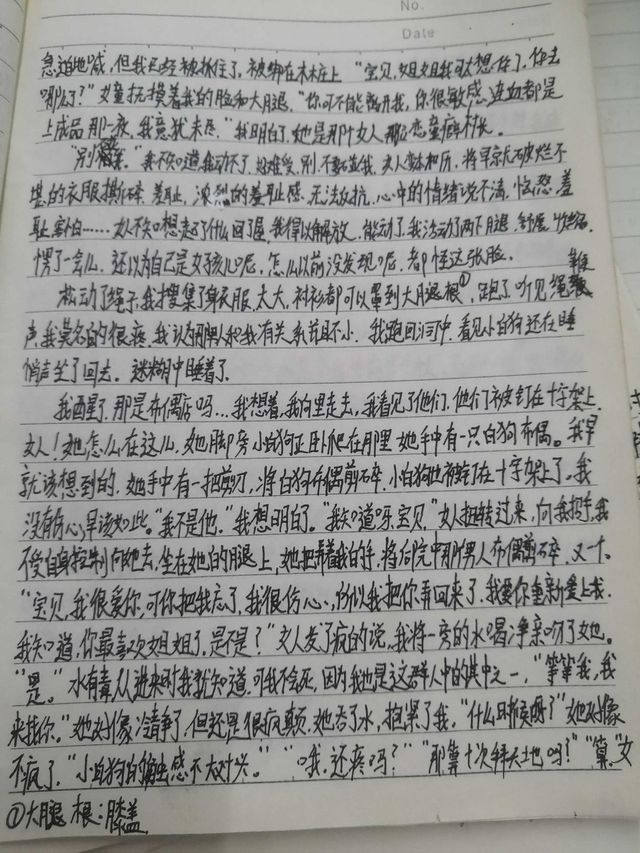 No.
Date
急迫地喊,但我已经被抓住了,被绑在木庄上 "宝贝,姐姐我可太想你了,你去
哪儿了?"女童抚摸着我的脸和大腿."你可不能离开我,你很敏感,连血都是
上成品 那一夜,我意犹未尽."我明白了,她是那个女人 那个恋童癖村长.
"别 我不知道我动不了,好难受,别,不要 我,女人 将早就破烂不
堪的衣服撕碎 羞耻,浓烈的羞耻感 无法反抗,心中的情绪说不清,恐惑羞
耻害怕……女人不知想起了什么回了屋,我得以解放.能动了,我活动了两下腿,舒展
愣了一会儿.还以为自己是女孩儿呢,怎么以前没发现呢,都怪这张脸.
松动了绳子,我搜集了身衣服,太大,衬衫都可以罩到大腿根①,跑了,听见绳
声,我莫名的很疼 我认为那男人和我有关系并且不小.我跑回河中,看见小白狗还在睡
悄声坐了回去.迷糊中睡着了.
我酉星了.那是布偶店吗...我想着,我向里走去,我看见了他们,他们被钉在十字架上
女人!她怎么在这儿,她脚旁小白狗正卧爬在那里 她手中有一只白狗布偶.我早
就该想到的.她手中有一把剪刀,将白狗布偶剪碎,小白狗他被钉在十字架上了,我
没有伤心,早该如此."我不是他."我想明白了."我知道呀,宝贝."女人扭转过来,向我招手,我
不受自身控制向她去,坐在她的腿上,她把弄着我的手,将后院中那男人布偶剪碎,又一个.
"宝贝,我很爱你,可你把我忘了,我很伤心,所以我把你弄回来了,我要你重新爱上我.
我知道,你最喜欢姐姐了,是不是?"女人发了疯的说,我将一旁的水喝净亲吻了她.
"是."水有毒,从进来时我就知道,可我不会死,因为我也是这群人中的其中之一,"等等我,我
来找你."她好像清净了,但还是很疯颠,她吞了水,抱紧了我."什么时候啊?"她好像
不疯了."小白狗的触感不太对头." "哦,还疼吗?" "那算十次拜天地吗?" "算."女
①大腿根:膝盖